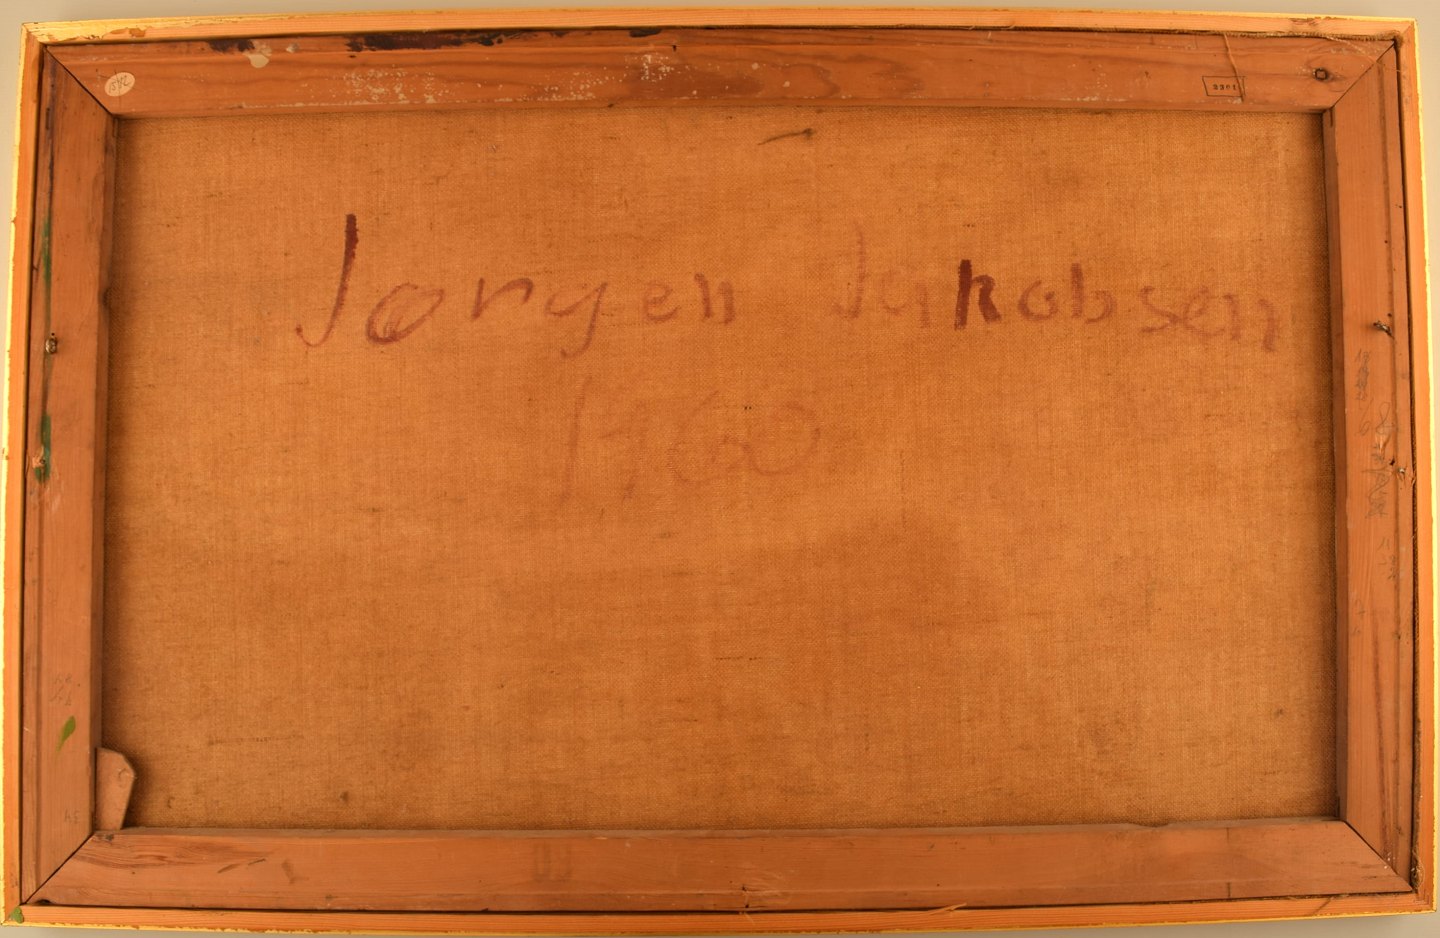 2301
Jørgen Jakobsen
1960